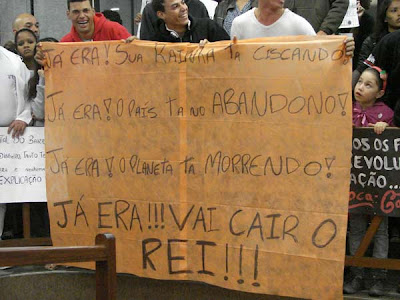 JÁ ERA! SUA RAINHA TA CISCANDO!
JÁ ERA! O PAÍS TA NO ABANDONO!
JÁ ERA! O PLANETA TA MORRENDO!
JÁ ERA!!! VAI CAIR O
REI!!!
EXPLICAÇÃO
OS OS F
REVOLU
AÇÃO...